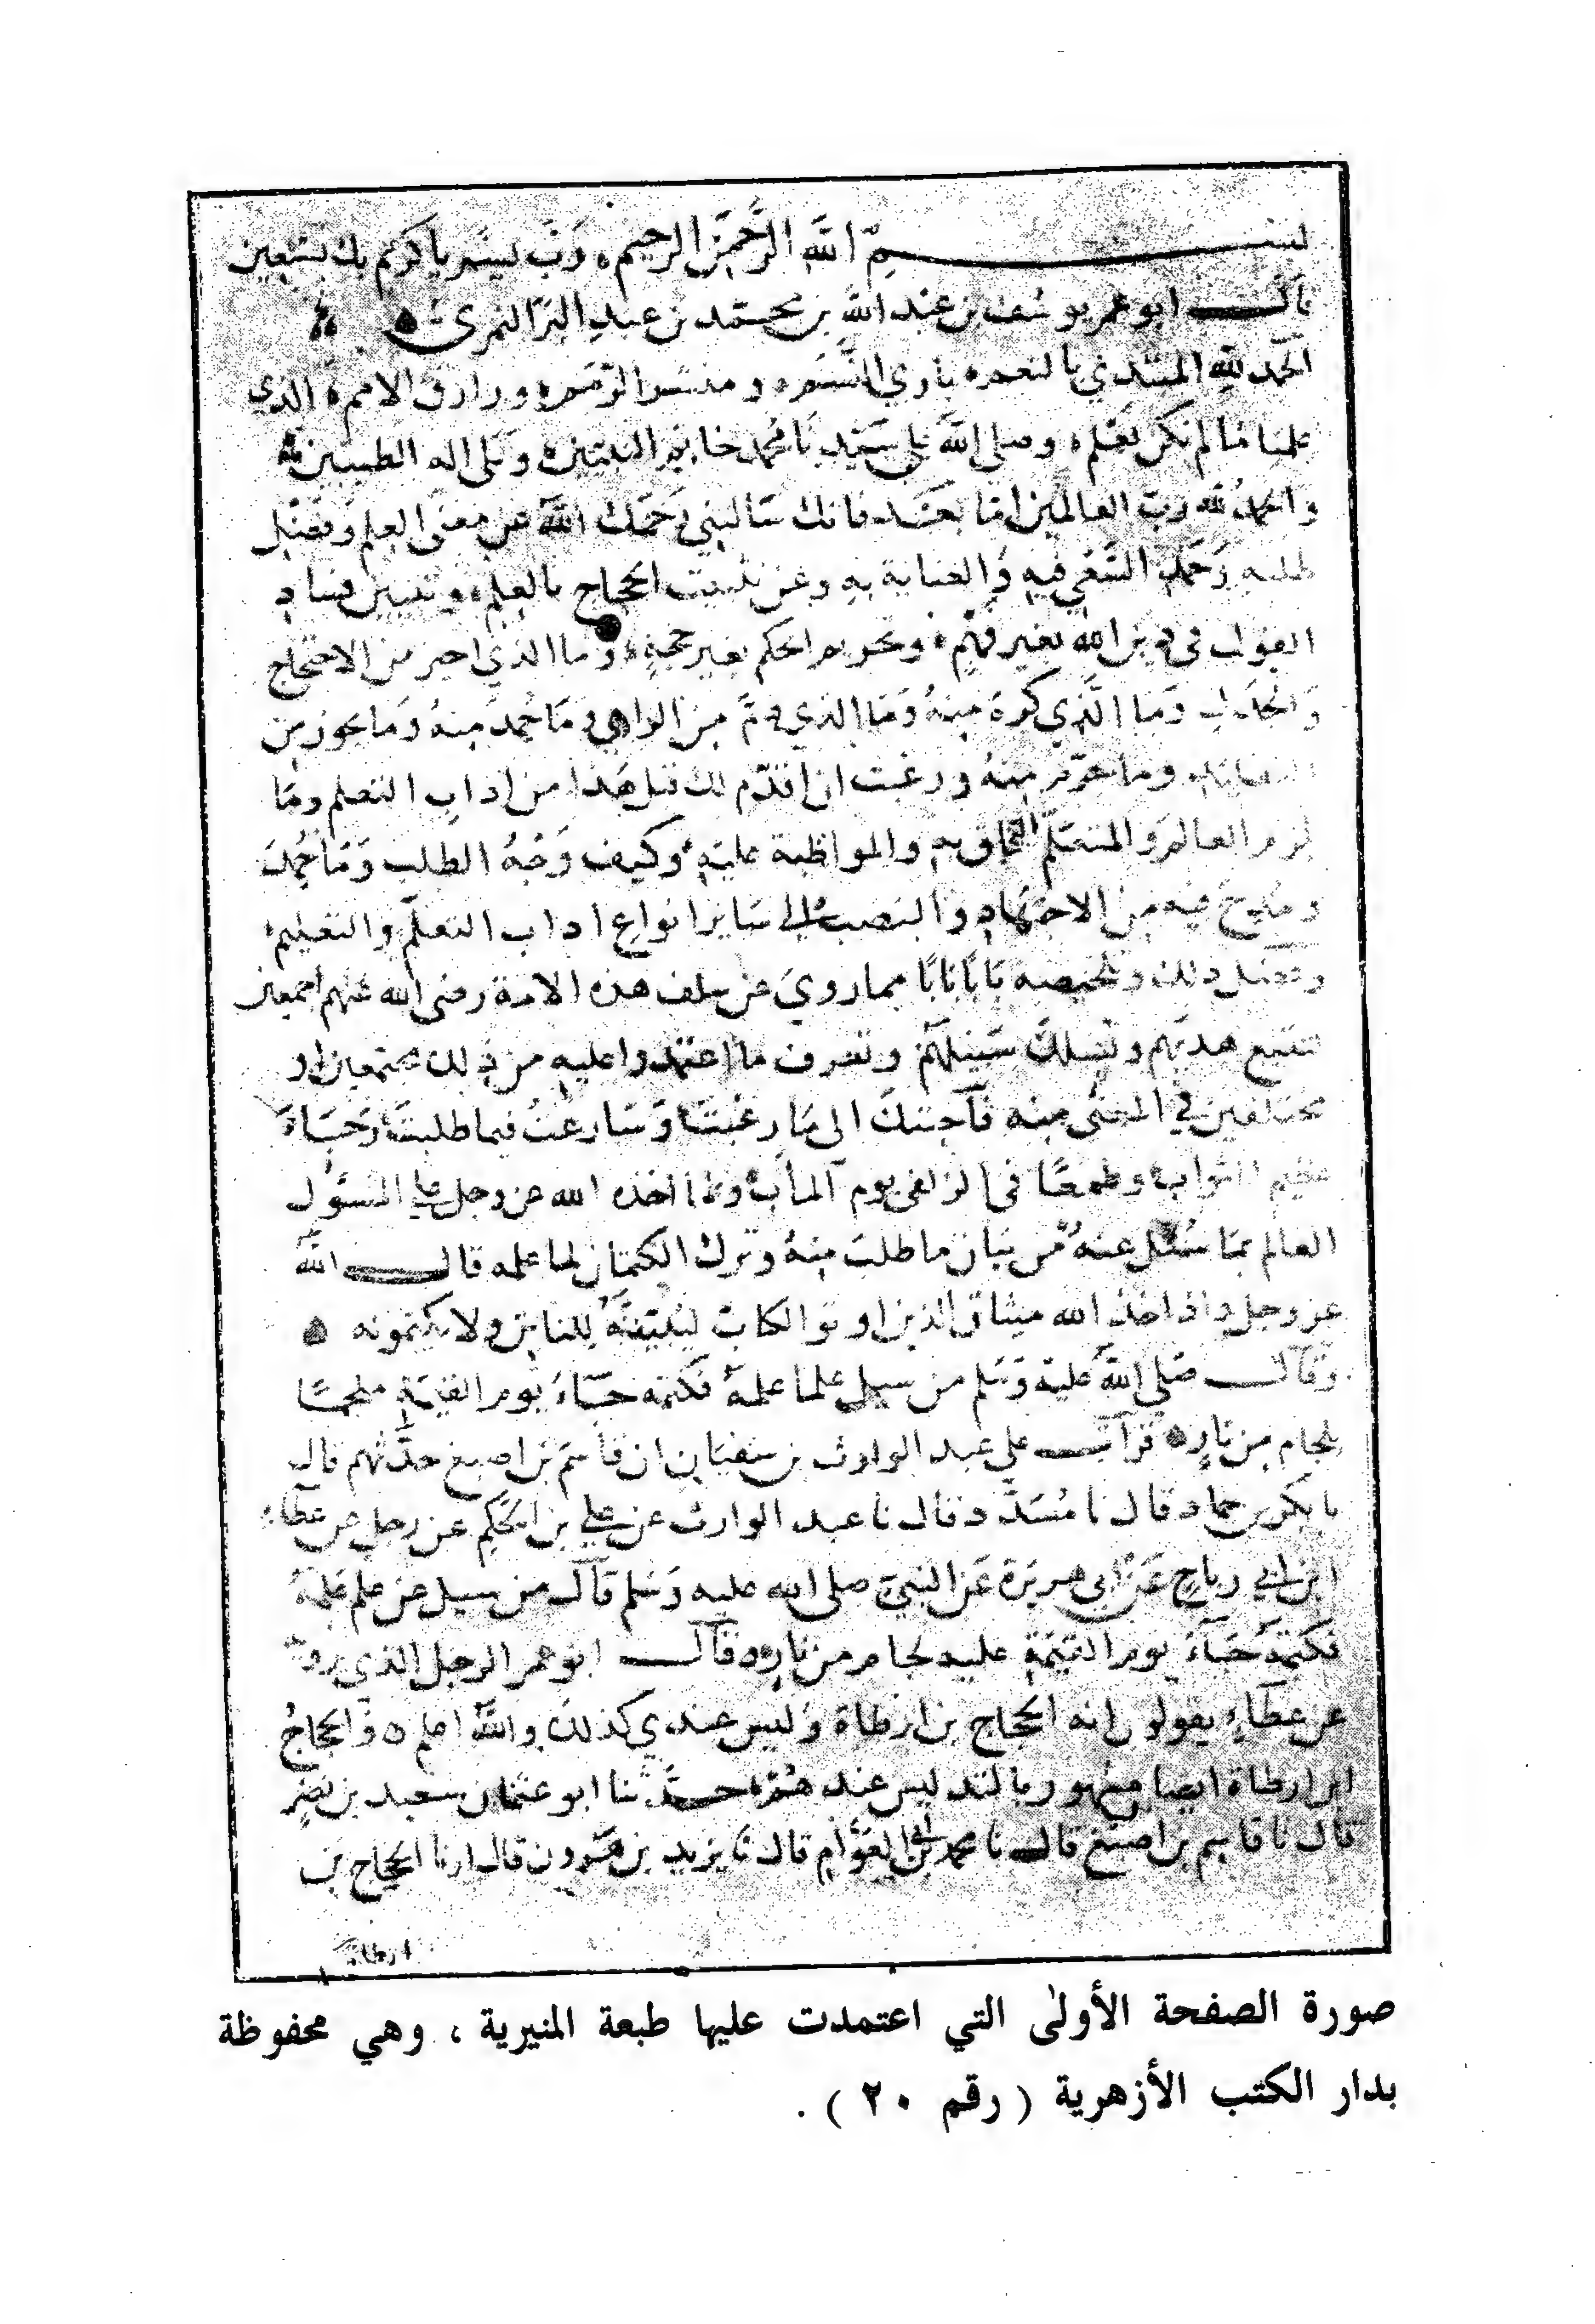 بسم الله الرحمن الرحيم، رَب يسر يا كريم بك نستعين
قال ابو عمر يوسف بن عبد الله بن محمد بن عبد البر النمري
الحمد لله المبتدي بالنعم باري النسم و منشر الرمم ورازق الامم الذي
علمنا ما لم نكن نعلم وصلى الله على سيدنا محمد خاتم النبيين وعلى اله الطيبين
والحمد لله رب العالمين اما بعد فانك سالتني رحمك الله عن معنى العلم وفضل
طلبه وحمد السعي فيه والعناية به وعن تثبيت الحجاج بالعلم وتبيين فساد
القول في دين الله بغير فهم وتحريم الحكم بغير حجة وما الذي اجيز من الاحتجاج
والجدل وما الذي كره منه وما الذي ذم من الراي وما حمد منه وما يجوز من
وما حرم منه ورغبت ان اقدم لك قبل هذا من اداب التعلم وما
يلزم العالم والمتعلم التخلق به والمواظبة عليه وكيف وجه الطلب وما حمد
ومدح فيه من الاجتهاد والنصب الى ساير انواع اداب التعلم والتعليم
وفضل ذلك وتلخيصه بابا بابا مما روي عن سلف هذه الامة رضي الله عنهم اجمعين
لتتبع هديهم وتسلك سبيلهم وتعرف ما اعتمدوا عليه من ذلك مجتمعين او
مختلفين في المعنى منه فاجبتك الى ما رغبت وسارعت فيما طلبت رجاء
عظيم الثواب وطمعا في الزلفى يوم المآب ولما اخذه الله عز وجل على المسؤل
العالم بما سُئل عنه من بيان ما طلب منه وترك الكتمان لما علمه قال الله
عز وجل واذ اخذ الله ميثاق الذين اوتو الكتاب لتبيننه للناس ولا يكتمونه
وقال صلى الله عليه وسلم من سيل علما علمه فكتمه جاء يوم القيمة ملجما
بلجام من نار قرات على عبد الوارث بن سفيان ان قاسم بن اصبغ حدثهم قال
نا بكر بن حماد قال نا مُسَدَّد قال نا عبد الوارث عن علي بن الحكم عن رجل عن عطاء
ابن ابي رباح عن ابي هريرة عن النبي صلى الله عليه وسلم قال من سيل عن علم علمه
فكتمه جاء يوم القيمة عليه لجام من نار قال ابو عمر الرجل الذي يرويه
عن عطاء يقولون انه الحجاج بن ارطاة وليس عندي كذلك والله اعلم والحجاج
ابن ارطاة ايضا مشهور بالتدليس عندهم حدثنا ابو عثمان سعيد بن نصر
قال نا قاسم بن اصبغ قال نا محمد بن ابي العوام قال نا يزيد بن هرون قال ارنا الحجاج بن
ارطاة
صورة الصفحة الأولىٰ التي اعتمدت عليها طبعة المنيرية ، وهي محفوظة
بدار الكتب الأزهرية ( رقم ٢٠ ) .